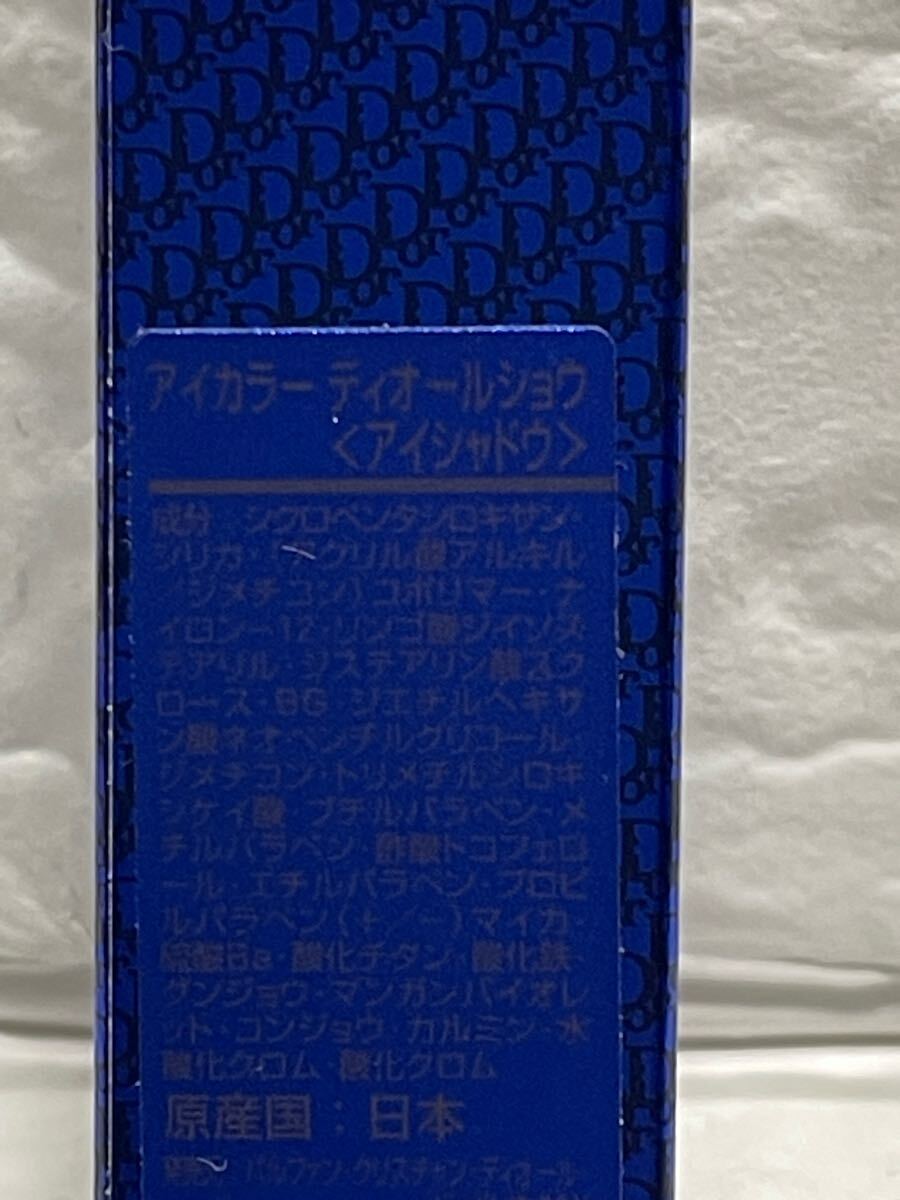 Dior Dior Dior Dior Dior Dior
アイカラー ディオールショウ
<アイシャドウ>
成分 シクロペンタシロキサン・
シリカ・(アクリル酸アルキル
/ジメチコン)コポリマー・ナ
イロン-12・リンゴ酸ジイソス
テアリル・ジステアリン酸スク
ロース・BG・ジエチルヘキサ
ン酸ネオペンチルグリコール・
ジメチコン・トリメチルシロキ
シケイ酸・ブチルパラベン・メ
チルパラベン・酢酸トコフェロ
ール・エチルパラベン・プロピ
ルパラベン(+/-)マイカ・
硫酸Ba・酸化チタン・酸化鉄・
グンジョウ・マンガンバイオレ
ット・コンジョウ・カルミン・水
酸化クロム・酸化クロム
原産国:日本
発売元 パルファン・クリスチャン・ディオール